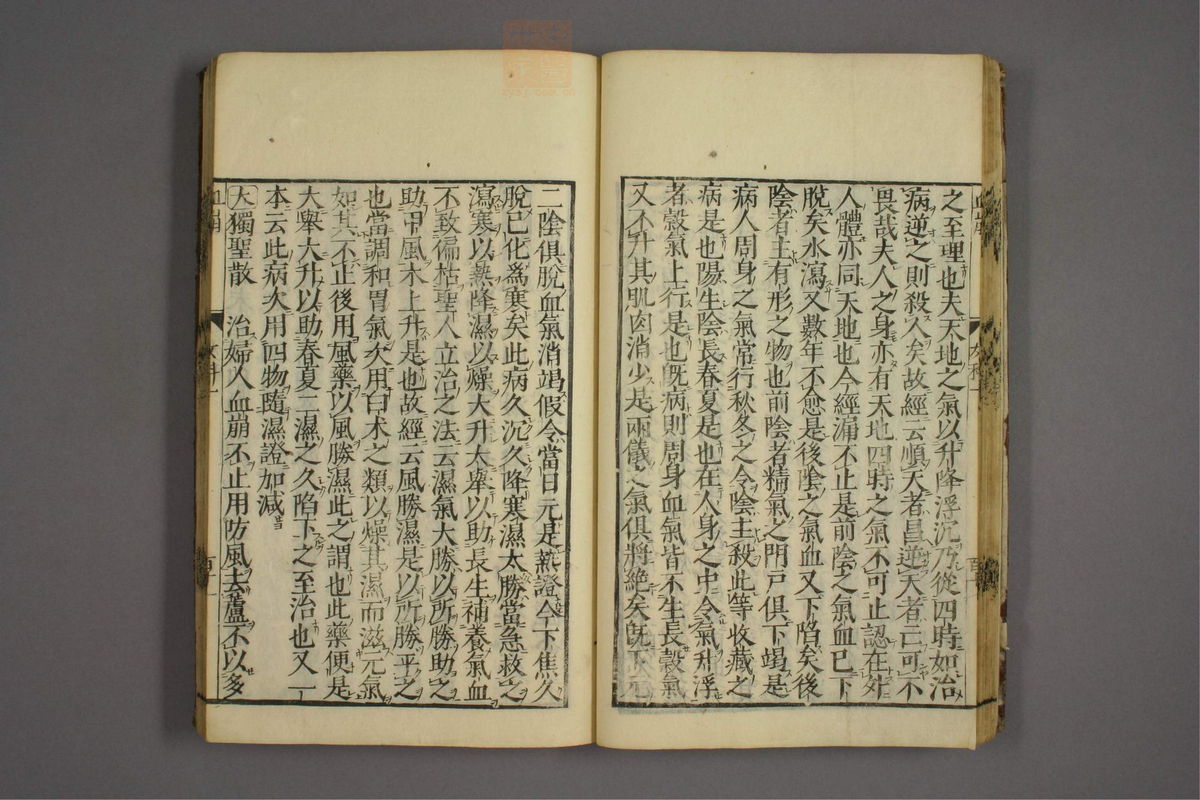 之至理也夫天地之氣以升降浮沉乃從四時如治
病逆之則殺人矣故經云順天者昌逆天者亡可不
畏哉夫人之身亦有天地四時之氣不可止認在外
人體亦同天地也今經漏不止是前陰之氣血已下
脫矣水瀉又數年不愈是後陰之氣血又下陷矣後
陰者主有形之物也前陰者精氣之門戸俱下竭是
病人周身之氣常行秋冬之令陰主殺此等收藏之
病是也陽生陰長春夏是也在人身之中令氣升浮
者穀氣上行是也既病則周身血氣皆不生長穀氣
又不升其肌肉消少是兩儀之氣俱將絶矣既下元
二陰俱脫血氣消竭假令當日元是熱證今下焦久
脫已化爲寒矣此病久沉久降寒濕太勝當急救之
瀉寒以熱降濕以燥大升大舉以助長生補養氣血
不致偏枯聖人立治之法云濕氣大勝以所勝助之
助甲風木上升是也故經云風勝濕是以所勝平之
也當調和胃氣次用白朮之類以燥其濕而滋元氣
如其不止後用風藥以風勝濕此之謂也此藥便是
大舉大升以助春夏二濕之久陷下之至治也又一
本云此病次用四物隨濕證加減
大獨聖散 治婦人血崩不止用防風去蘆不以多
血崩
女科一